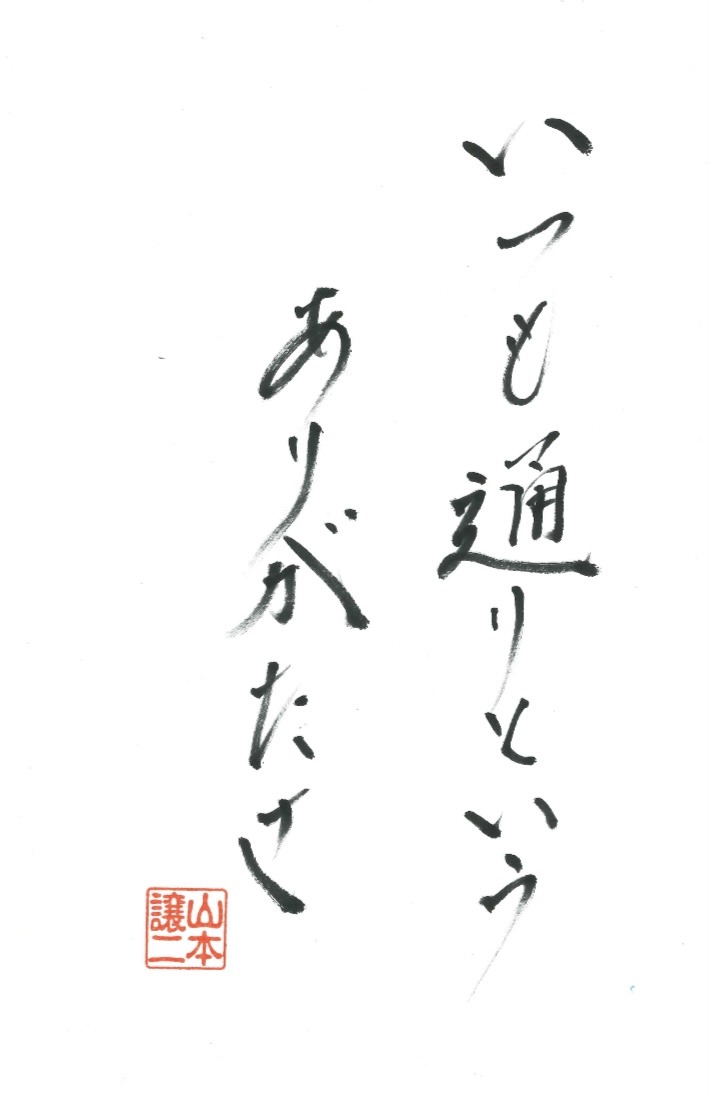 いつも通りという
ありがたさ
山本
譲二